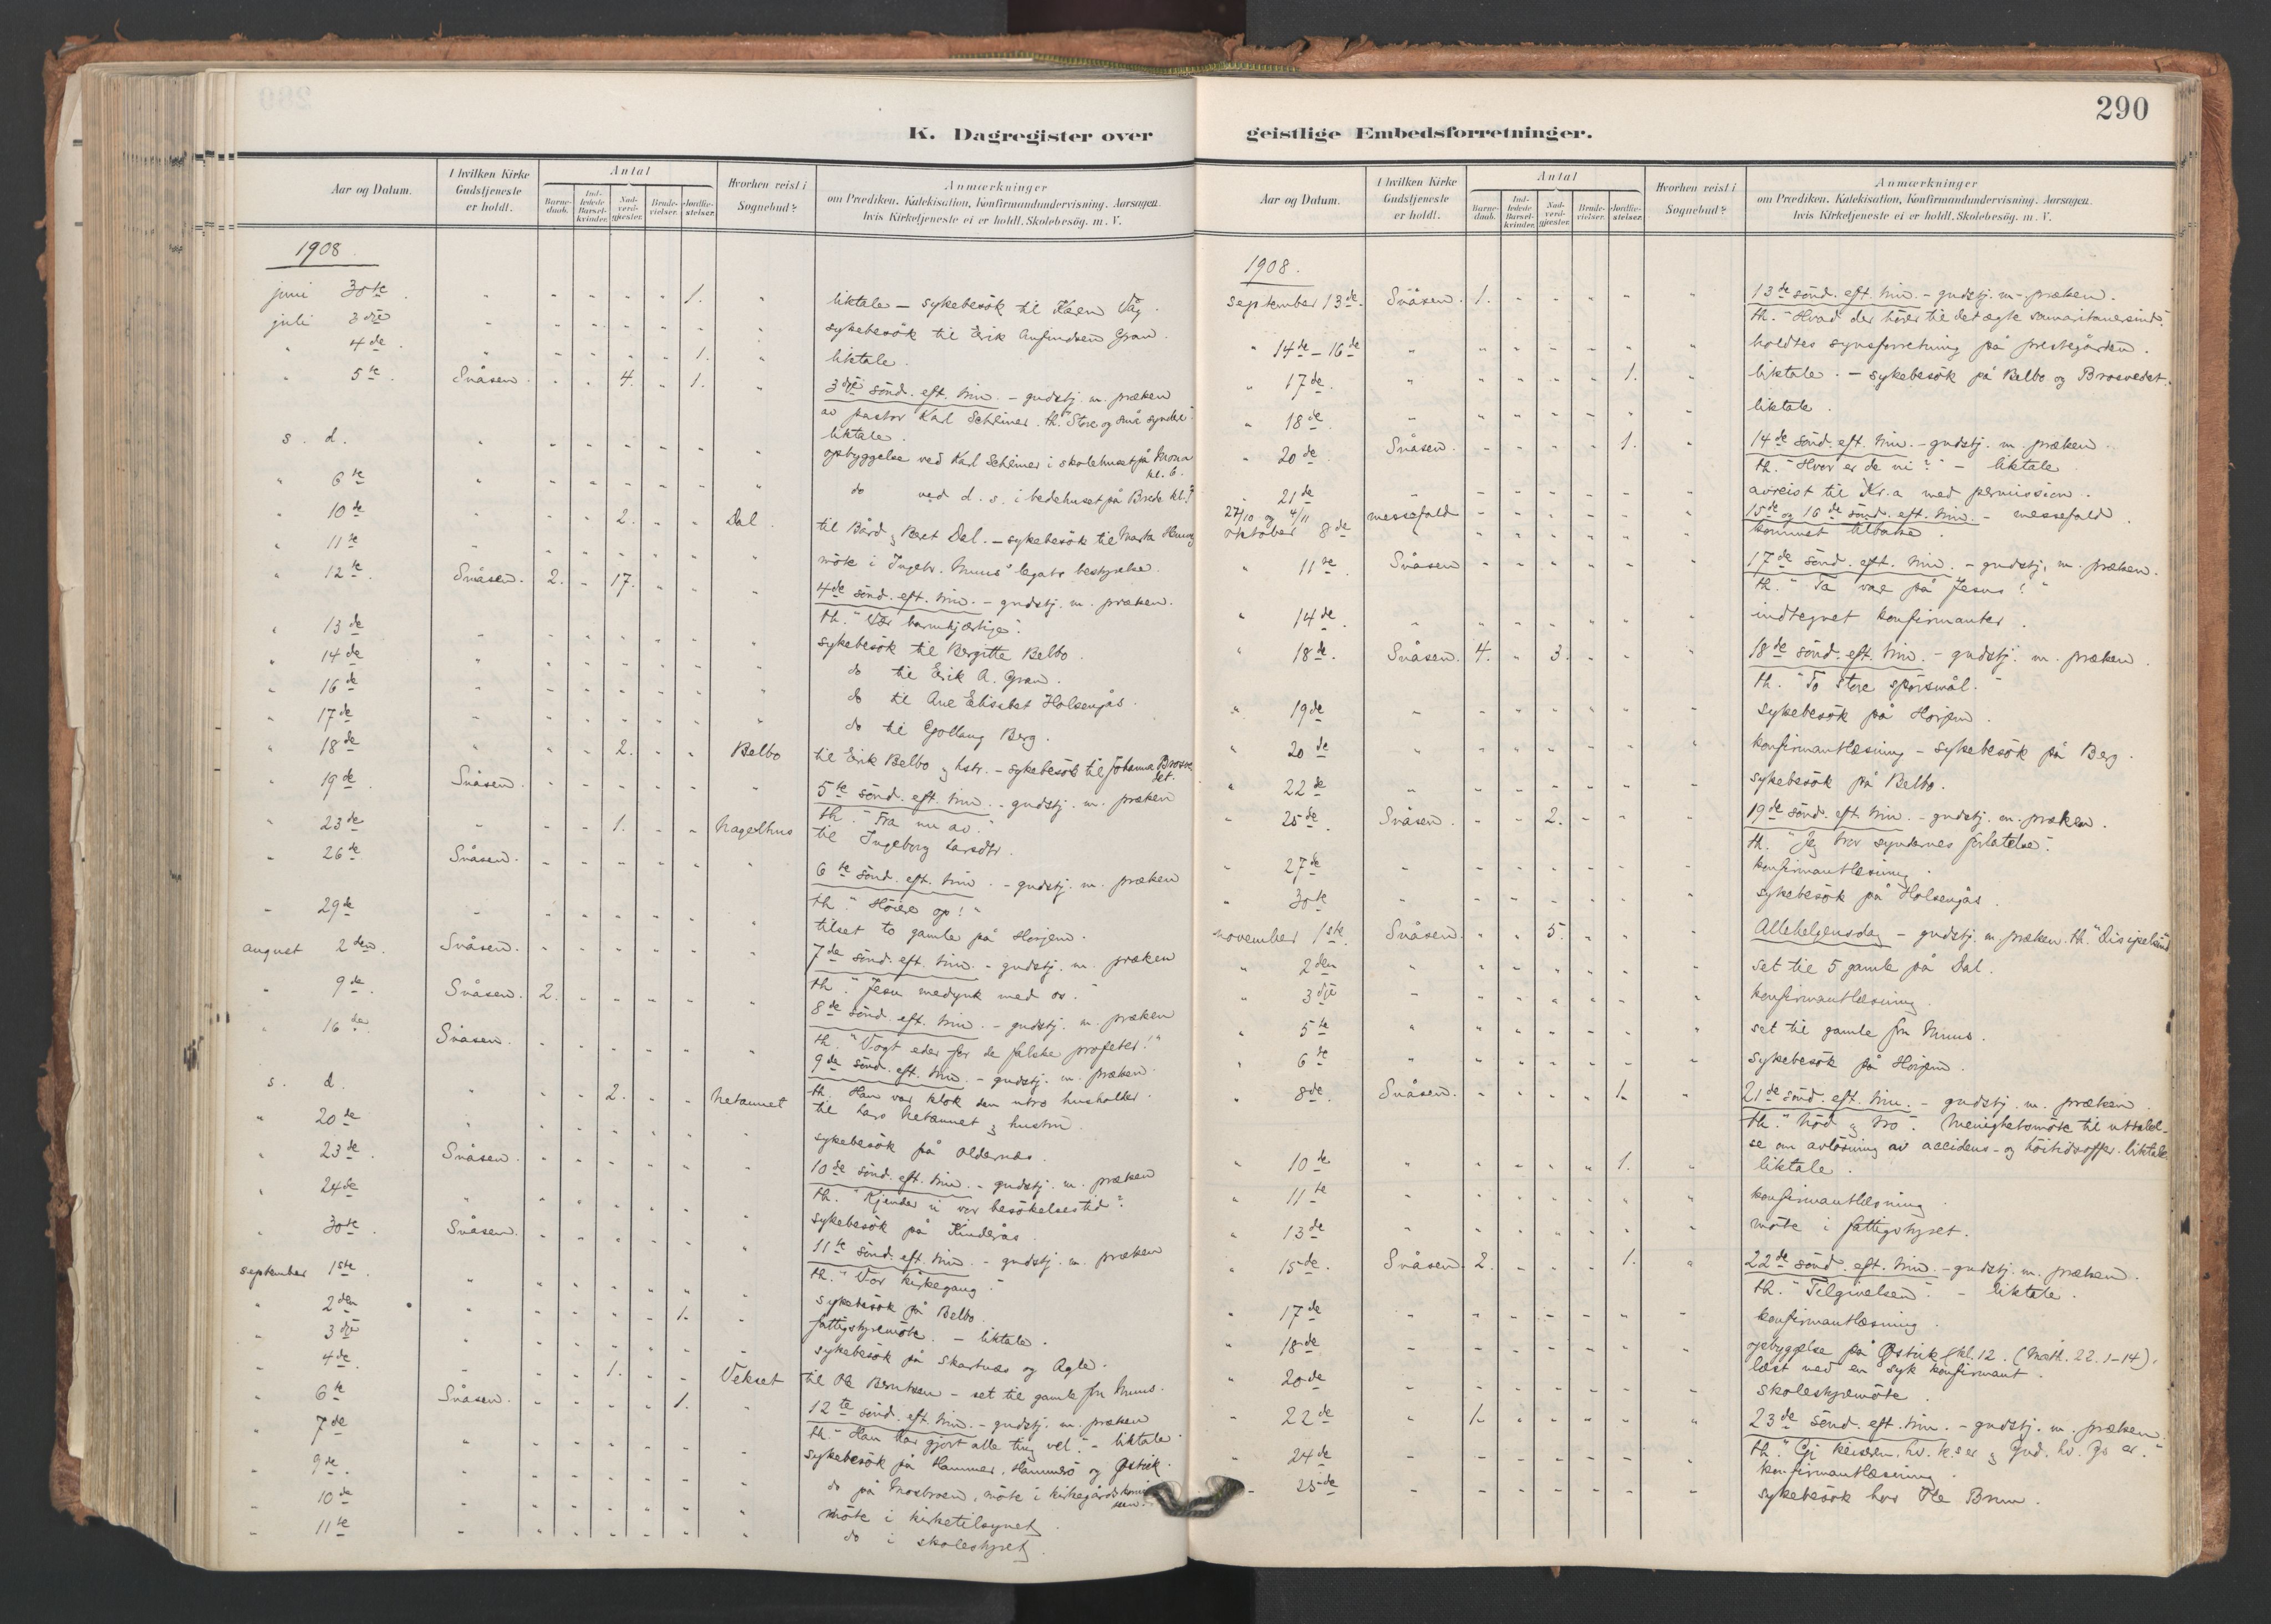 290
K. Dagregister over
geistlige Embedsforretninger.
Aar og Datum.
I hvilken Kirke Gudstjeneste er holdt.
Antal
Barnedaab.
Indledede Barselkvinder.
Nadverdgjester.
Brudevielser.
Jordfæstelser.
Hvorhen reist i Sognebud?
Anmærkninger
om Prædiken, Katekisation, Konfirmandundervisning. Aarsagen
hvis Kirketjeneste ei er holdt. Skolebesøg. m. V.
1908.
juni 30te. 1. liktale – sykebesök til Karen Våg.
juli 3dje sykebesök til Erik Anfindsen Gran.
" 4de. 1. liktale.
" 5te. Snåsen. 4. 1. 3dje sönd. eft. trin. – gudstj. m. præken
av pastor Karl Schlimer. th. "Store og små syndere".
liktale.
s. d. opbyggelse ved Karl Schlimer i skolehuset på Moum
kl. 6.
" 6te do ved d. s. i bedehuset på Brede kl. 7
" 10de 2. Dal. til Bård og Beret Dal. – sykebesök til Marta
" 11te möte i Ingebr. Muus' legats bestyrelse.
" 12te. Snåsen. 2. 17. 4de sönd. eft. trin. – gudstj. m. præken.
th. "Vær barmhjærtige".
" 13de sykebesök til Bergitte Belbo.
" 14de do til Erik A. Gran.
" 16de do til Ane Elisabet Holsengjås.
" 17de do til Gollaug Berg.
" 18de 2. Belbo til Erik Belbo og hstr. – sykebesök til Johanna Brosve
det.
" 19de. Snåsen. 5te sönd. eft. trin. – gudstj. m. præken
th. "Fra nu av."
" 23de 1. Nagelhus til Ingeborg Larsdtr.
" 26te Snåsen. 6te sönd. eft. trin. – gudstj. m. præken
th. "Höiere op!"
" 29de tilset to gamle på Horjem.
august 2den. Snåsen. 7de sönd. eft. trin. – gudstj. m. præken
th. "Jesu medynk med os."
" 9de. Snåsen. 2. 8de sönd. eft. trin. – gudstj. m. præken
th. "Vogt eder for de falske profeter!"
" 16de. Snåsen. 9de sönd. eft. trin. – gudstj. m. præken.
th. Han var klok den utro husholder.
s. d. 2. Netaunet til Lars Netaunet og hustru.
" 20de sykebesök på Oldernæs.
" 23de. Snåsen. 10de sönd. eft. trin. – gudstj. m. præken
th. "Kjender vi vor besökelsestid?"
" 24de sykebesök på Kinderås.
" 30te. Snåsen. 11te sönd. eft. trin. – gudstj. m. præken
th. "Vor kirkegang".
september 1ste. sykebesök på Belbo.
" 2den 1. fattigstyremöte. – liktale.
" 3dje sykebesök på Skartnæs og Agle.
" 4de. 1. Vekset til Ole Berntsen – set til gamle fru Muus.
" 6te Snåsen. 1. 12te sönd. eft. trin. – gudstj. m. præken
th. "Han har gjort alle ting vel." – liktale.
" 7de sykebesök på Hammer, Hammerö og Østvik.
" 9de. do på Mosbroen, möte i kirkegårdskomis
sion.
" 10de möte i kirketilsynet
" 11te do i skolestyret.
1908.
september 13de. Snåsen. 1. 13de sönd. eft. trin. – gudstj. m. præken.
th. "Hvad der hörer til det ægte samaritanersind".
" 14de – 16de holdtes synsforretning på prestegården.
" 17de. 1. liktale. – sykebesök på Belbo og Brosvedet.
" 18de liktale.
" 20de Snåsen. 1. 14de sönd. eft. trin. – gudstj. m. præken.
th. "Hvor er de ni?" – liktale
" 21de avreist til Kr.a med permission.
27/10 og 4/11 messefald 15de og 16de sönd. eft. trin. – messefald.
oktober 8de kommet tilbake.
" 11te. Snåsen 17de sönd. eft. trin. – gudstj. m. præken.
th. "Ta vare på Jesus!"
" 14de. indtegnet konfirmanter.
" 18de. Snåsen. 4. 3. 18de sönd. eft. trin. – gudstj. m. præken.
th. "To store spörsmål."
" 19de sykebesök på Horjem.
" 20de konfirmantlæsning – sykebesök på Berg.
" 22de sykebesök på Belbo.
" 25de. Snåsen. 2. 19de sönd. eft. trin. – gudstj. m. præken.
th. "Jeg tror syndernes forlatelse".
" 27de konfirmantlæsning.
" 30te sykebesök på Holsengjås.
november 1ste. Snåsen. 5. Allehelgensdag – gudstj. m præken. th. "Disipelsind
" 2den set til 5 gamle på Dal.
" 3dje konfirmantlæsning.
" 5te set til gamle fru Muus.
" 6te sykebesök på Horjem.
" 8de. Snåsen. 1. 21de sönd. eft. trin. – gudstj. m. præken
th. "Nöd og tro". Menighetsmöte til uttalel-
se om avlösning av accidens- og höitidsoffer. liktale.
" 10de 1. liktale.
" 11te konfirmantlæsning
" 13de möte i fattigstyret.
" 15de. Snåsen. 2. 1. 22de sönd. eft. trin. – gudstj. m. præken.
th. "Tilgivelsen". – liktale.
" 17de konfirmantlæsning.
" 18de opbyggelse på Østvik kl. 12. (Math. 22. 1–14).
læst med en syk konfirmant.
" 20de skolestyremöte.
" 22de 1. 23de sönd. eft. trin. – gudstj. m. præken.
th. "Gi keiseren hv. k.s er og Gud. hv. Gs er."
" 24de konfirmantlæsning.
" 25de sykebesök hos Ole Brun.